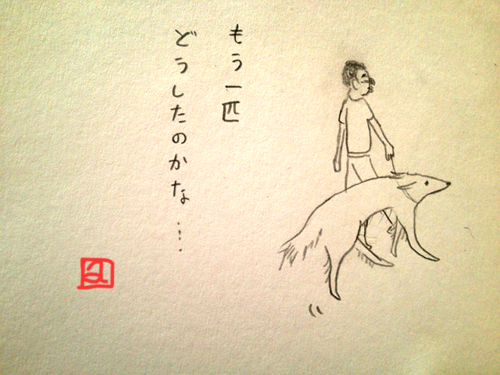 もう一匹
どうしたのかな…